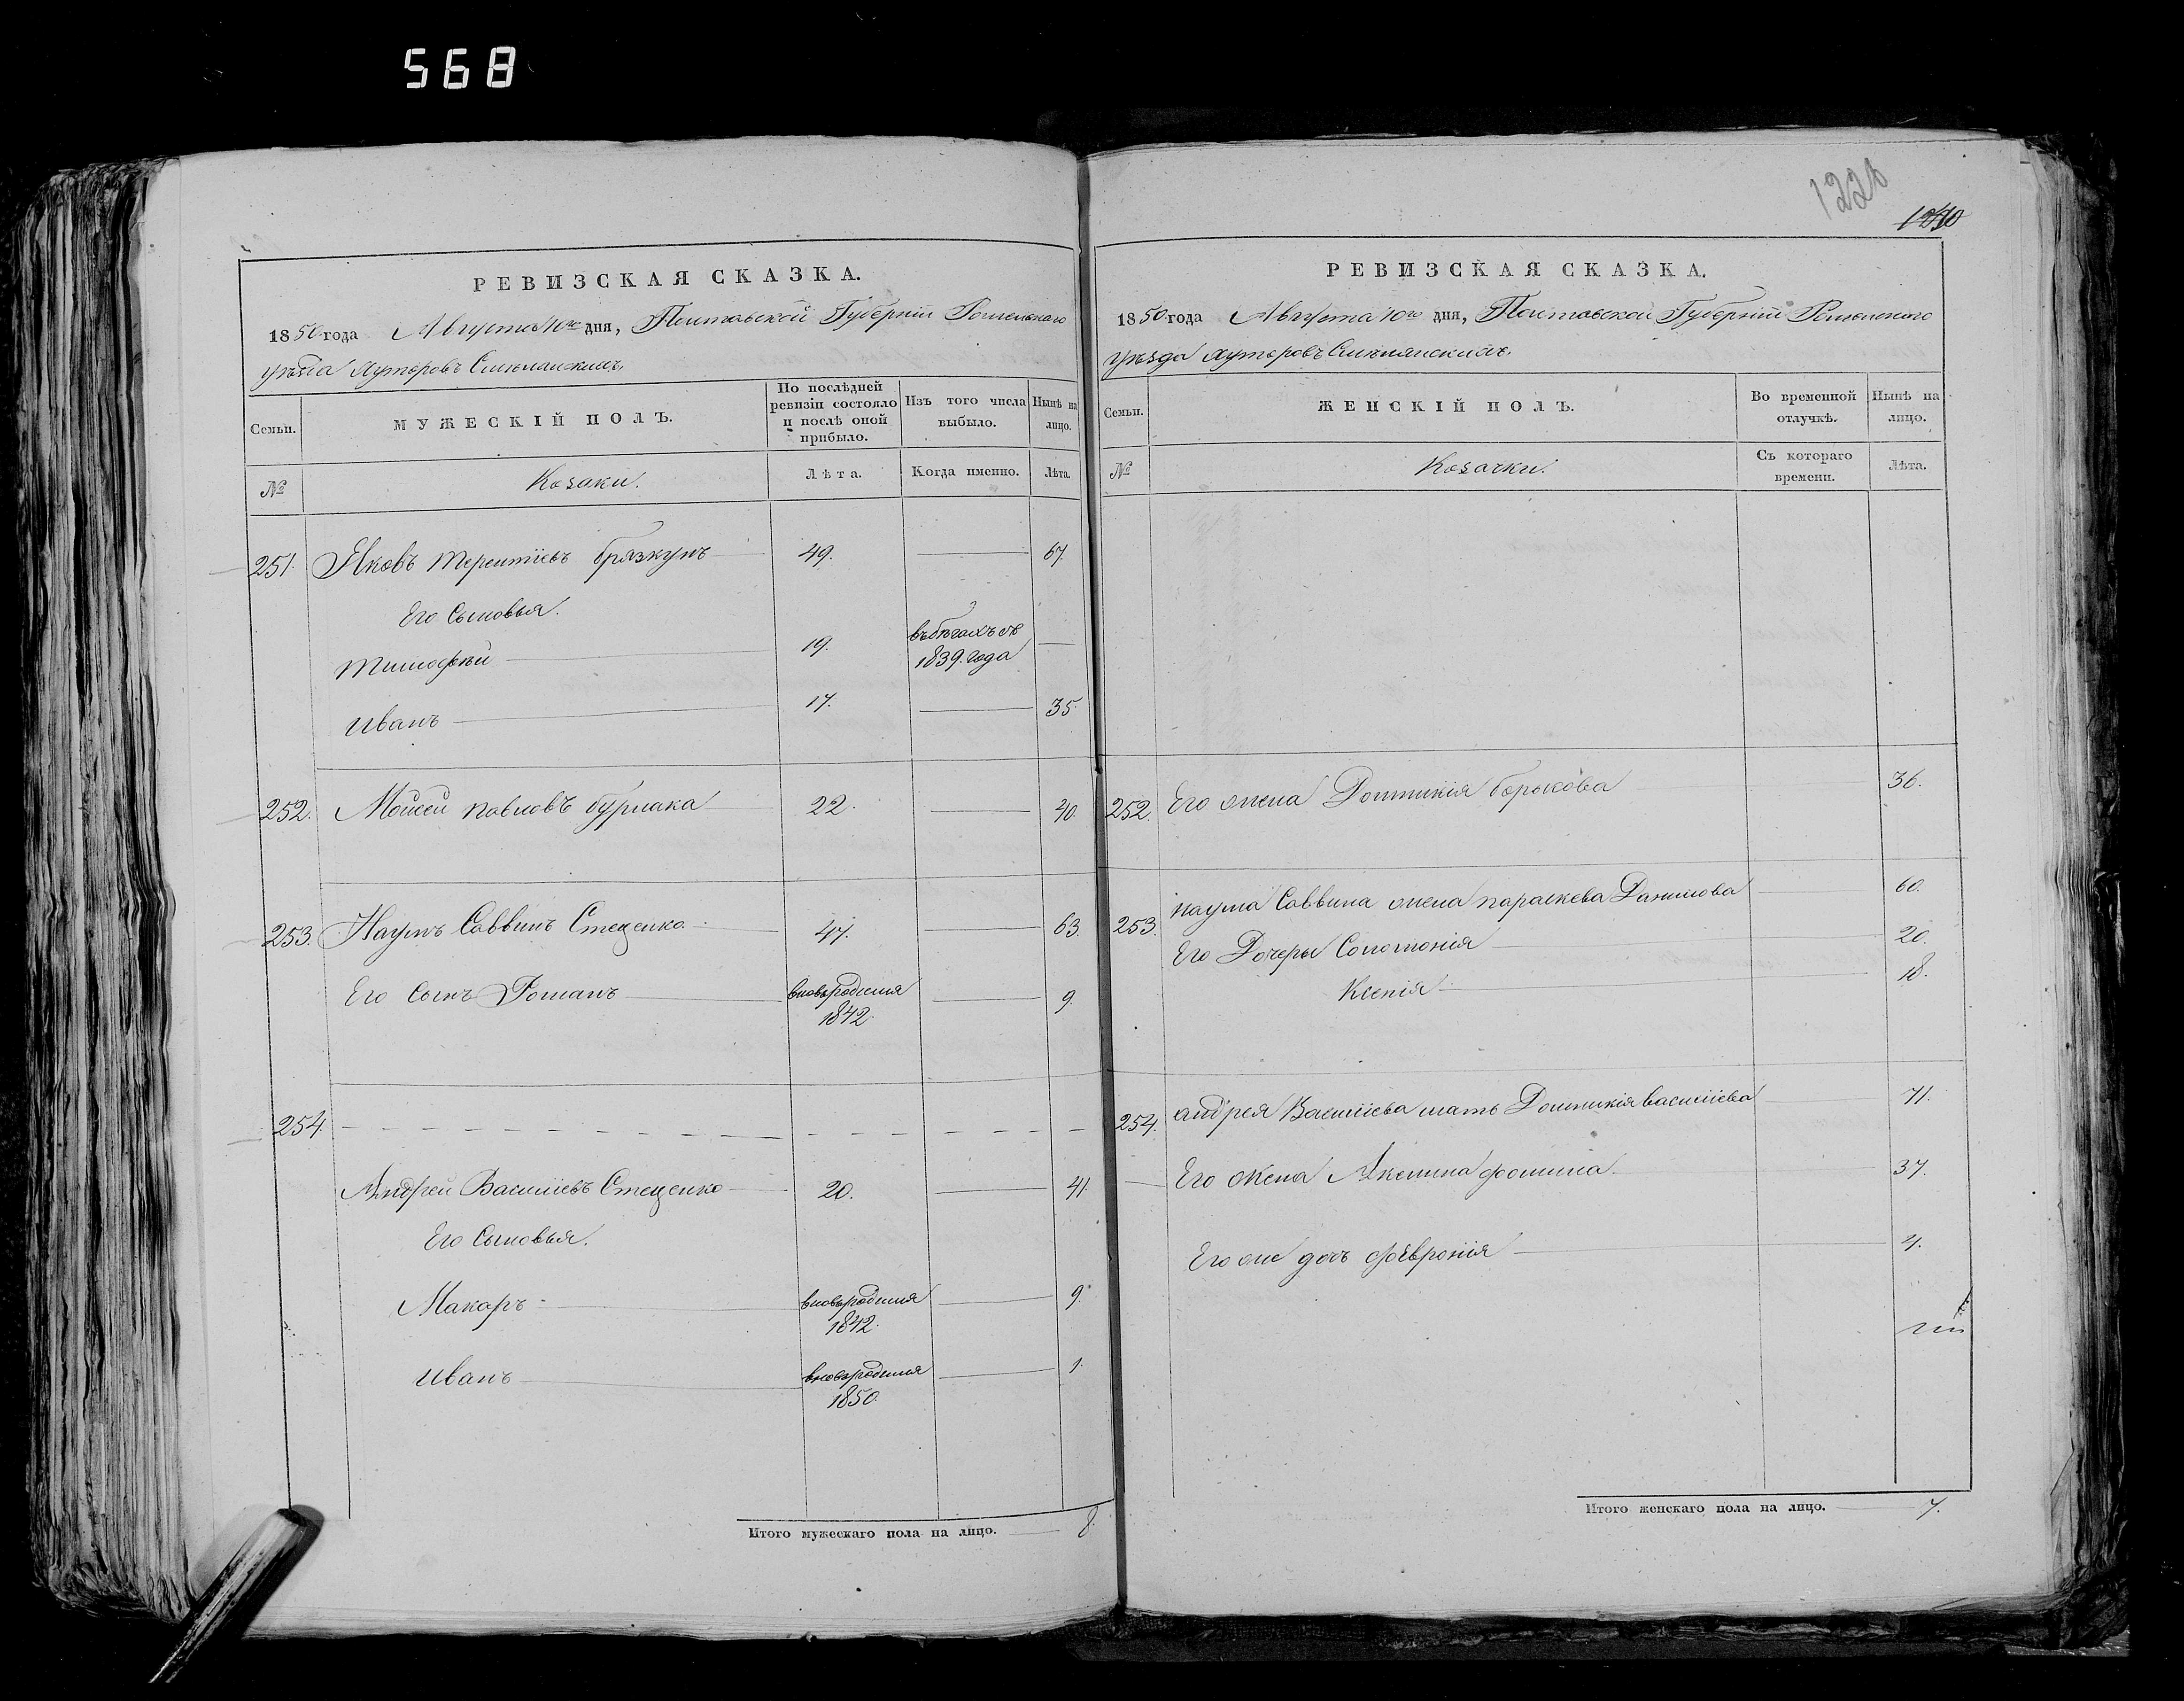 568
1220
1210
РЕВИЗСКАЯ СКАЗКА.
1850 года Августа 10го дня, Полтавской Губерніи Роменскаго
уѣзда Хуторовъ
Семьи.
МУЖЕСКІЙ ПОЛЪ.
По послѣдней ревизіи состояло и послѣ оной прибыло.
Изъ того числа выбыло.
Нынѣ на лицо.
№
Козаки.
Лѣта.
Когда именно.
Лѣта.
251. Яковъ Терентіевъ брязкунъ 49. 67.
Его Сыновья.
Тимофѣй 19. въ бѣгахъ съ 1839. года
Иванъ 17. 35.
252. Мойсей павловъ бурлака 22. 40.
253. Наумъ Саввинъ Стеценко 47. 63.
Его Сынъ Романъ вновьрожденъ 1842. 9.
254.
Андрей Василіевъ Стеценко 20. 41.
Его Сыновья.
Макаръ вновьрожденъ 1842. 9.
Иванъ вновьрожденъ 1850. 1.
Итого мужескаго пола на лицо. 8.
РЕВИЗСКАЯ СКАЗКА.
1850 года Августа 10го дня, Полтавской Губерніи Роменскаго
уѣзда хуторовъ
Семьи.
ЖЕНСКІЙ ПОЛЪ.
Во временной отлучкѣ.
Нынѣ на лицо.
№
Козачки.
Съ котораго времени.
Лѣта.
252. Его жена Домникія борисова 36.
253. наума Саввина жена параскева Данилова 60.
Его Дочеры Соломонія 20.
Ксенія 18.
254. андрея Василіева мать Домникія василіева 71.
Его жена Акелина фомина 37.
Его же дочь февронія 4.
Итого женскаго пола на лицо. 7.